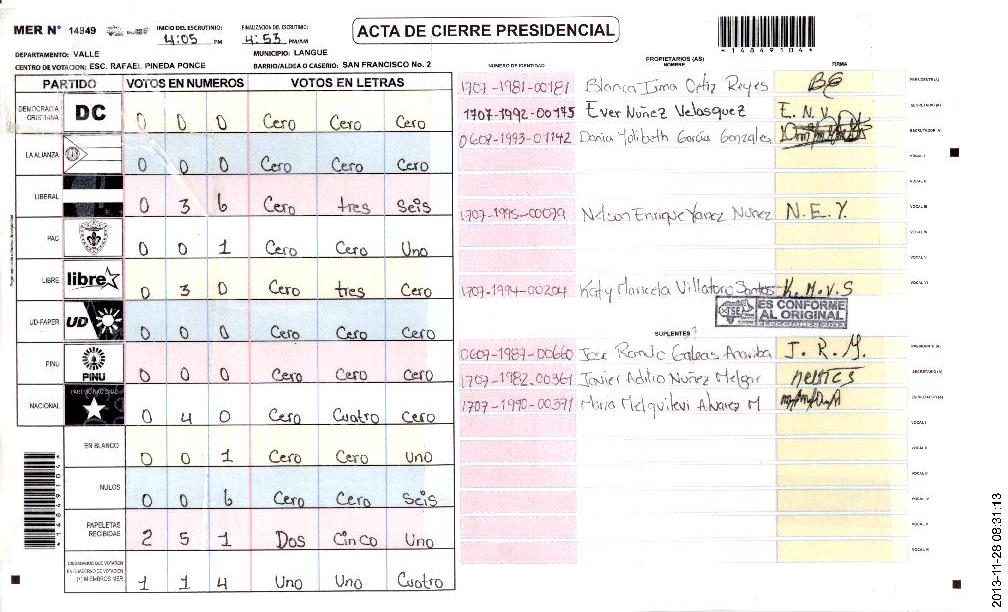 MER N° 14949
INICIO DEL ESCRUTINIO:
4:05 PM
FINALIZACION DEL ESCRUTINIO:
4:53 PM/AM
ACTA DE CIERRE PRESIDENCIAL
*148491041*
DEPARTAMENTO: VALLE
MUNICIPIO: LANGUE
CENTRO DE VOTACION: ESC. RAFAEL PINEDA PONCE
BARRIO/ALDEA O CASERIO: SAN FRANCISCO No. 2
PARTIDO VOTOS EN NUMEROS VOTOS EN LETRAS
DEMOCRACIA CRISTIANA DC 0 0 0 Cero Cero Cero
LA ALIANZA 0 0 0 Cero Cero Cero
LIBERAL 0 3 6 Cero tres Seis
PAC 0 0 1 Cero Cero Uno
LIBRE libre 0 3 0 Cero tres Cero
UD-FAPER UD 0 0 0 Cero Cero Cero
PINU PINU 0 0 0 Cero Cero Cero
NACIONAL PARTIDO NACIONAL 0 4 0 Cero Cuatro Cero
EN BLANCO 0 0 1 Cero Cero uno
NULOS 0 0 6 Cero Cero Seis
PAPELETAS RECIBIDAS 2 5 1 Dos Cinco Uno
CIUDADANOS QUE VOTARON EN CUADERNO DE VOTACION (*) MIEMBROS MER 1 1 4 Uno Uno Cuatro
PROPIETARIOS (AS)
NUMERO DE IDENTIDAD NOMBRE FIRMA
1707-1981-00181 Blanca Irma Ortiz Reyes PRESIDENTE(A)
1707-1992-00175 Ever Nuñez Velasquez E. N. V. SECRETARIO (A)
0602-1993-01142 Dania Yolibeth García Gonzales ESCRUTADOR (A)
VOCAL I
VOCAL II
1707-1995-00079 Nelson Enrique Yanez Nuñez N. E. Y. VOCAL III
VOCAL IV
VOCAL V
1707-1994-00204 Katy Maricela Villatoro Santos K.M.V.S VOCAL VI
TSE
ES CONFORME
AL ORIGINAL
ELECCIONES 2013
SUPLENTES
0607-1987-00660 Jose J. R. M. PRESIDENTE (A)
1707-1982-00361 Javier Adilio Nuñez Melgar SECRETARIO(A)
1707-1990-00371 Maria Melquilevi Alvarez M ESCRUTADOR (A)
VOCAL I
VOCAL II
VOCAL III
VOCAL IV
VOCAL V
VOCAL VI
2013-11-28 08:31:13